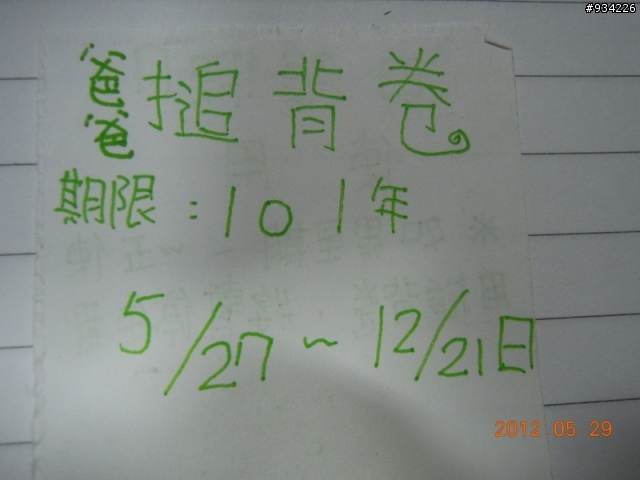 #934226
爸爸搥背卷
期限：101年
5/27～12/21日
2012 05 29